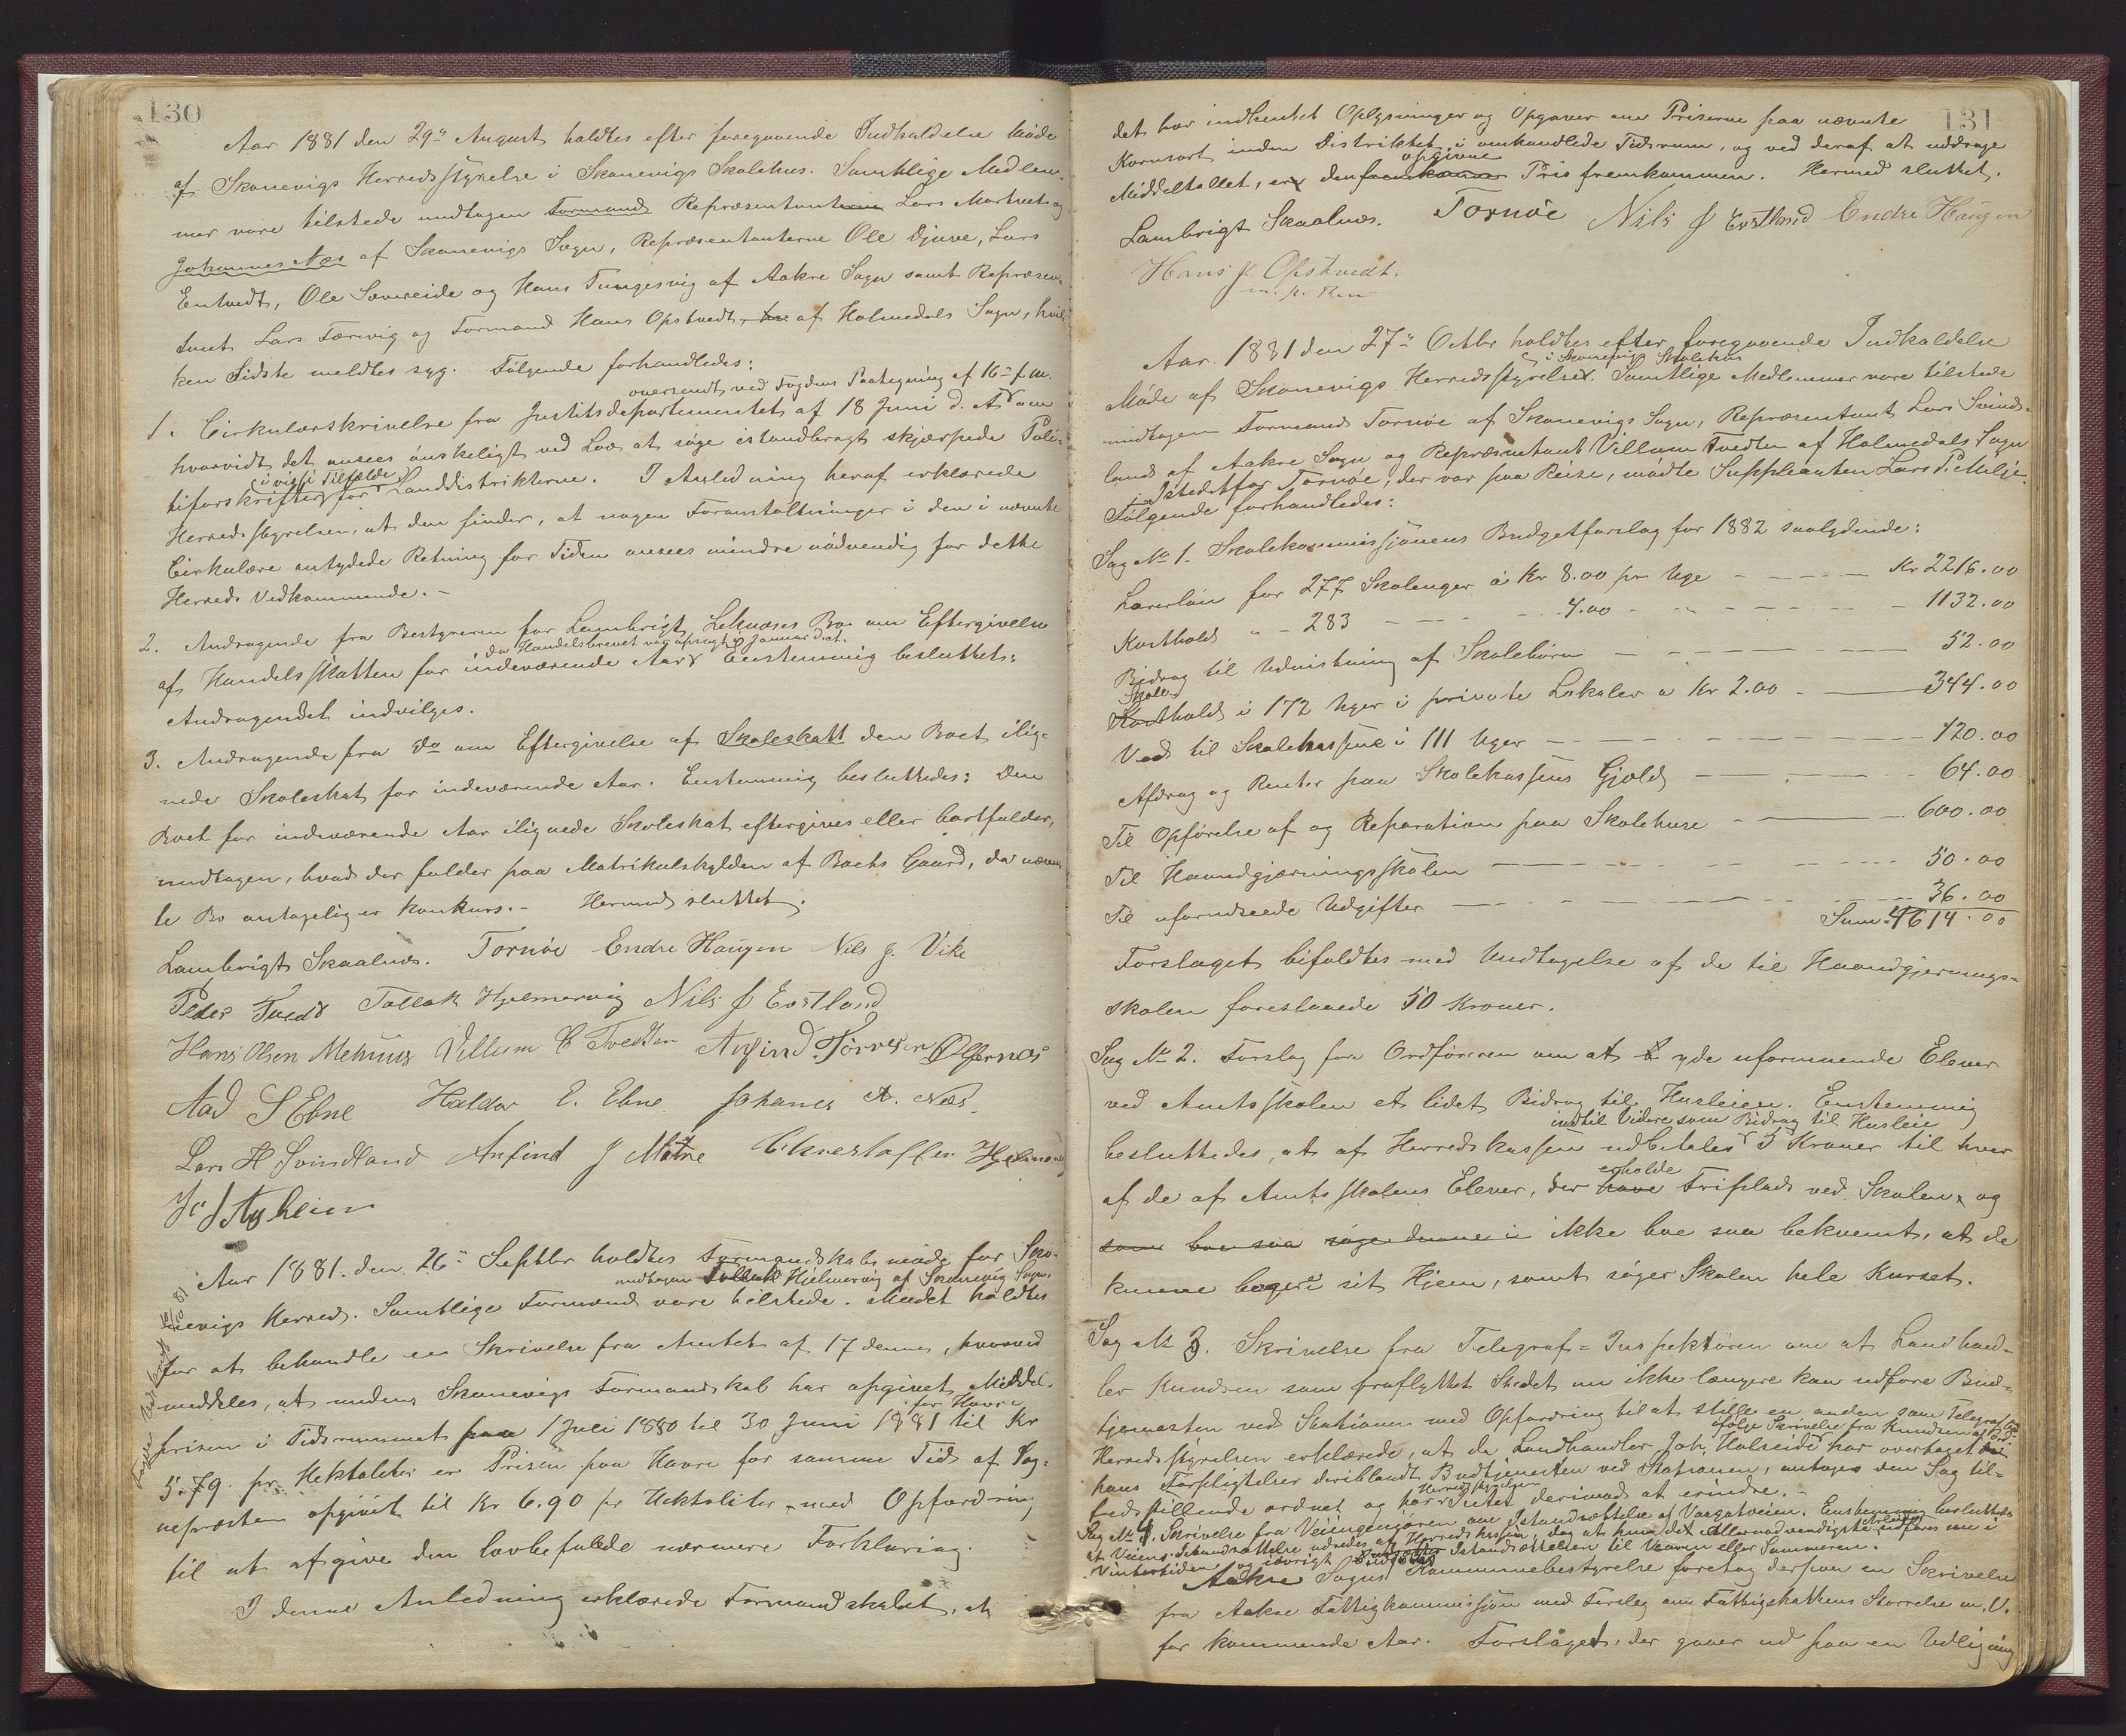 130
Aar 1881 den 29de August holdtes efter foregaaende Indkaldelse Møde
af Skonevigs Herredsstyrelse i Skonevigs Skolehus. Samtlige Medlem-
mer vare tilstede undtagen Formand Repræsentanterne Lars Matnet og
Johannes Næs af Skonevigs Sogn, Repræsentanterne Ole Djuve, Lars
Entvedt, Ole Sævereide og Hans Tungesvig af Aakre Sogn samt Repræsen-
tant Lars Færevig og Formand Hans Opstvedt, hv af Holmedals Sogn, hvil
ken Sidste meldtes syg. Følgende forhandledes:
oversendt ved Fogdens Paategning af 16de f.M.
1. Cirkulærskrivelse fra Justitsdepartementet af 18 Juni d. A. om
hvorvidt det ansees ønskeligt ved Lov at søge istandbragt skjærpede Poli-
i visse Tilfælde
tiforskrifter for Landdistrikterne. I Anledning heraf erklærede
Herredsstyrelsen, at den finder, at nogen Foranstaltninger i den i nævnte
Cirkulære antydede Retning for Tiden ansees mindre nødvendig for dette
Herreds Vedkommende. -
2. Andragende fra Bestyreren for Lambrigt Leknæses Bo om Eftergivelse
da Handelsbrevet var opsagt i Januar d. A.
af Handelsskatten for indeværende Aar. Eenstemmig besluttet:
Andragendet indvilges.
3. Andragende fra Do om Eftergivelse af Skoleskatt den Boet ilig-
nede Skoleskat for indeværende Aar. Enstemmig besluttedes: Den
Boet for indeværende Aar ilignede Skoleskat eftergives eller bortfalder,
undtagen, hvad der falder paa Matrikulskylden af Boets Gaard, da nævn
te Bo antagelig er konkurs. - Hermed sluttet.
Lambrigt Skaalnes. Tornöe Endre Haugen Nils J. Vike
Peder Tvedt Tollak Hjelmervig Nils J Östland
Hans Olsen Mehuus Villum C Tvedten Anfind Törresen Ölfernes
Aad S Ebne Haldor E. Ebne Johanes A. Næs
Lars H Svindland Anfind J Matre
Aar 1881. den 26de Septbr holdtes Formandskabsmøde for Sko-
undtagen Tollak Hjelmervig af Skonevig Sogn.
nevigs Herred. Samtlige Formænd vare tilstede. Mødet holdtes
for at behandle en Skrivelse fra Amtet af 17 dennes, hvorved
meddeles, at medens Skonevigs Formandskab har opgivet Middel-
for Havre
prisen i Tidsrummet fra 1 Juli 1880 til 30 Juni 1881 til Kr
5.79 pr Hektoliter er Prisen paa Havre for samme Tid af Sog-
nepræsten opgivet til Kr 6.90 pr Hektoliter, med Opfordring
til at afgive den lovbefalede nærmere Forklaring.
I denne Anledning erklærede Formandskabet, at
131
det har indhentet Oplysninger og Opgaver om Priserne paa nævnte
Kornsort inden Distriktet i omhandlede Tidsrum, og ved deraf at uddrage
opgivne
Middeltallet, er den fremkomne Pris fremkommen. Hermed sluttet.
Lambrigt Skaalnes. Tornöe Nils J Östland Endre Haugen
Hans J. Opstvedt.
m. p. Pen
Aar 1881 den 27de Octbr holdtes efter foregaaende Indkaldelse
i Skonevigs Skolehus
Møde af Skonevigs Herredsstyrelse. Samtlige Medlemmer vare tilstede
undtagen Formand Tornøe af Skonevigs Sogn, Repræsentant Lars Svind-
land af Aakre Sogn og Repræsentant Villum Tvedten af Holmedals Sogn
Istedetfor Tornøe, der var paa Reise, mødte Suppleanten Lars P. Milje.
Følgende forhandledes:
Sag No 1. Skolekommissionens Budgetforslag for 1882 saalydende:
Lærerløn for 277 Skoleuger à Kr 8.00 pr Uge - - - Kr 2216.00
Kosthold " - 283 - - - 4.00 - - - 1132.00
Bidrag til Undervisning af Skolebørn - - - 52.00
Skole
Kosthold i 172 Uger i private Lokaler a Kr 2.00 - 344.00
Ved til Skolehusene i 111 Uger - - - 120.00
Afdrag og Renter paa Skolekassens Gjæld - - - 64.00
Til Opførelse af og Reparation paa Skolehuse - - 600.00
Til Haandgjærningsskolen - - - 50.00
Til uforudseede Udgifter - - - 36.00
Sum 4614.00
Forslaget bifaldtes med Undtagelse af de til Haandgjernings-
skolen foreslaaede 50 Kroner.
Sag No 2. Forslag fra Ordføreren om at yde uformuende Elever
ved Amtsskolen et lidet Bidrag til Husleien. Enstemmig
indtil Videre som Bidrag til Husleie
besluttedes, at af Herredskassen udbetales 5 Kroner til hver
erholde
af de af Amtsskolens Elever, der have Friplads ved Skolen, og
som boe saa søge denne i ikke boe saa bekvemt, at de
kunne logere i sit Hjem, samt søger Skolen hele Kurset.
Sag No 3. Skrivelse fra Telegraf-Inspektøren om at Landhand-
ler Knudsen som fraflyttet Stedet nu ikke længere kan udføre Bud-
tjenesten ved Stationen med Opfordring til at stille en anden som Telegrafbud
ifølge Skrivelse fra Knudsen af
Herredsstyrelsen erklærede, at da Landhandler Joh. Halseide har overtaget
hans Forpligtelser deriblandt Budtjenesten ved Stationen, antages den Sag til-
Herredsstyrelsen
fredsstillende ordnet og har Intet derimod at erindre. -
Sag No 4. Skrivelse fra Veiingeniøren om Istandsættelse af Vaagatveien. Enstemmig besluttedes
at Veiens Istandsættelse udredes af Herredskassen, dog at kun det Allernødvendigste udføres nu i
Vintertiden og iøvrigt Istandsættelsen til Vaaren eller Sommeren.
Aakre Sogns Kommunebestyrelse foretog derpaa en Skrivelse
fra Aakre Fattigkommission med Forslag om Fattigskattens Størrelse m. V.
for kommende Aar. Forslaget, der gaaer ud paa en Udligning